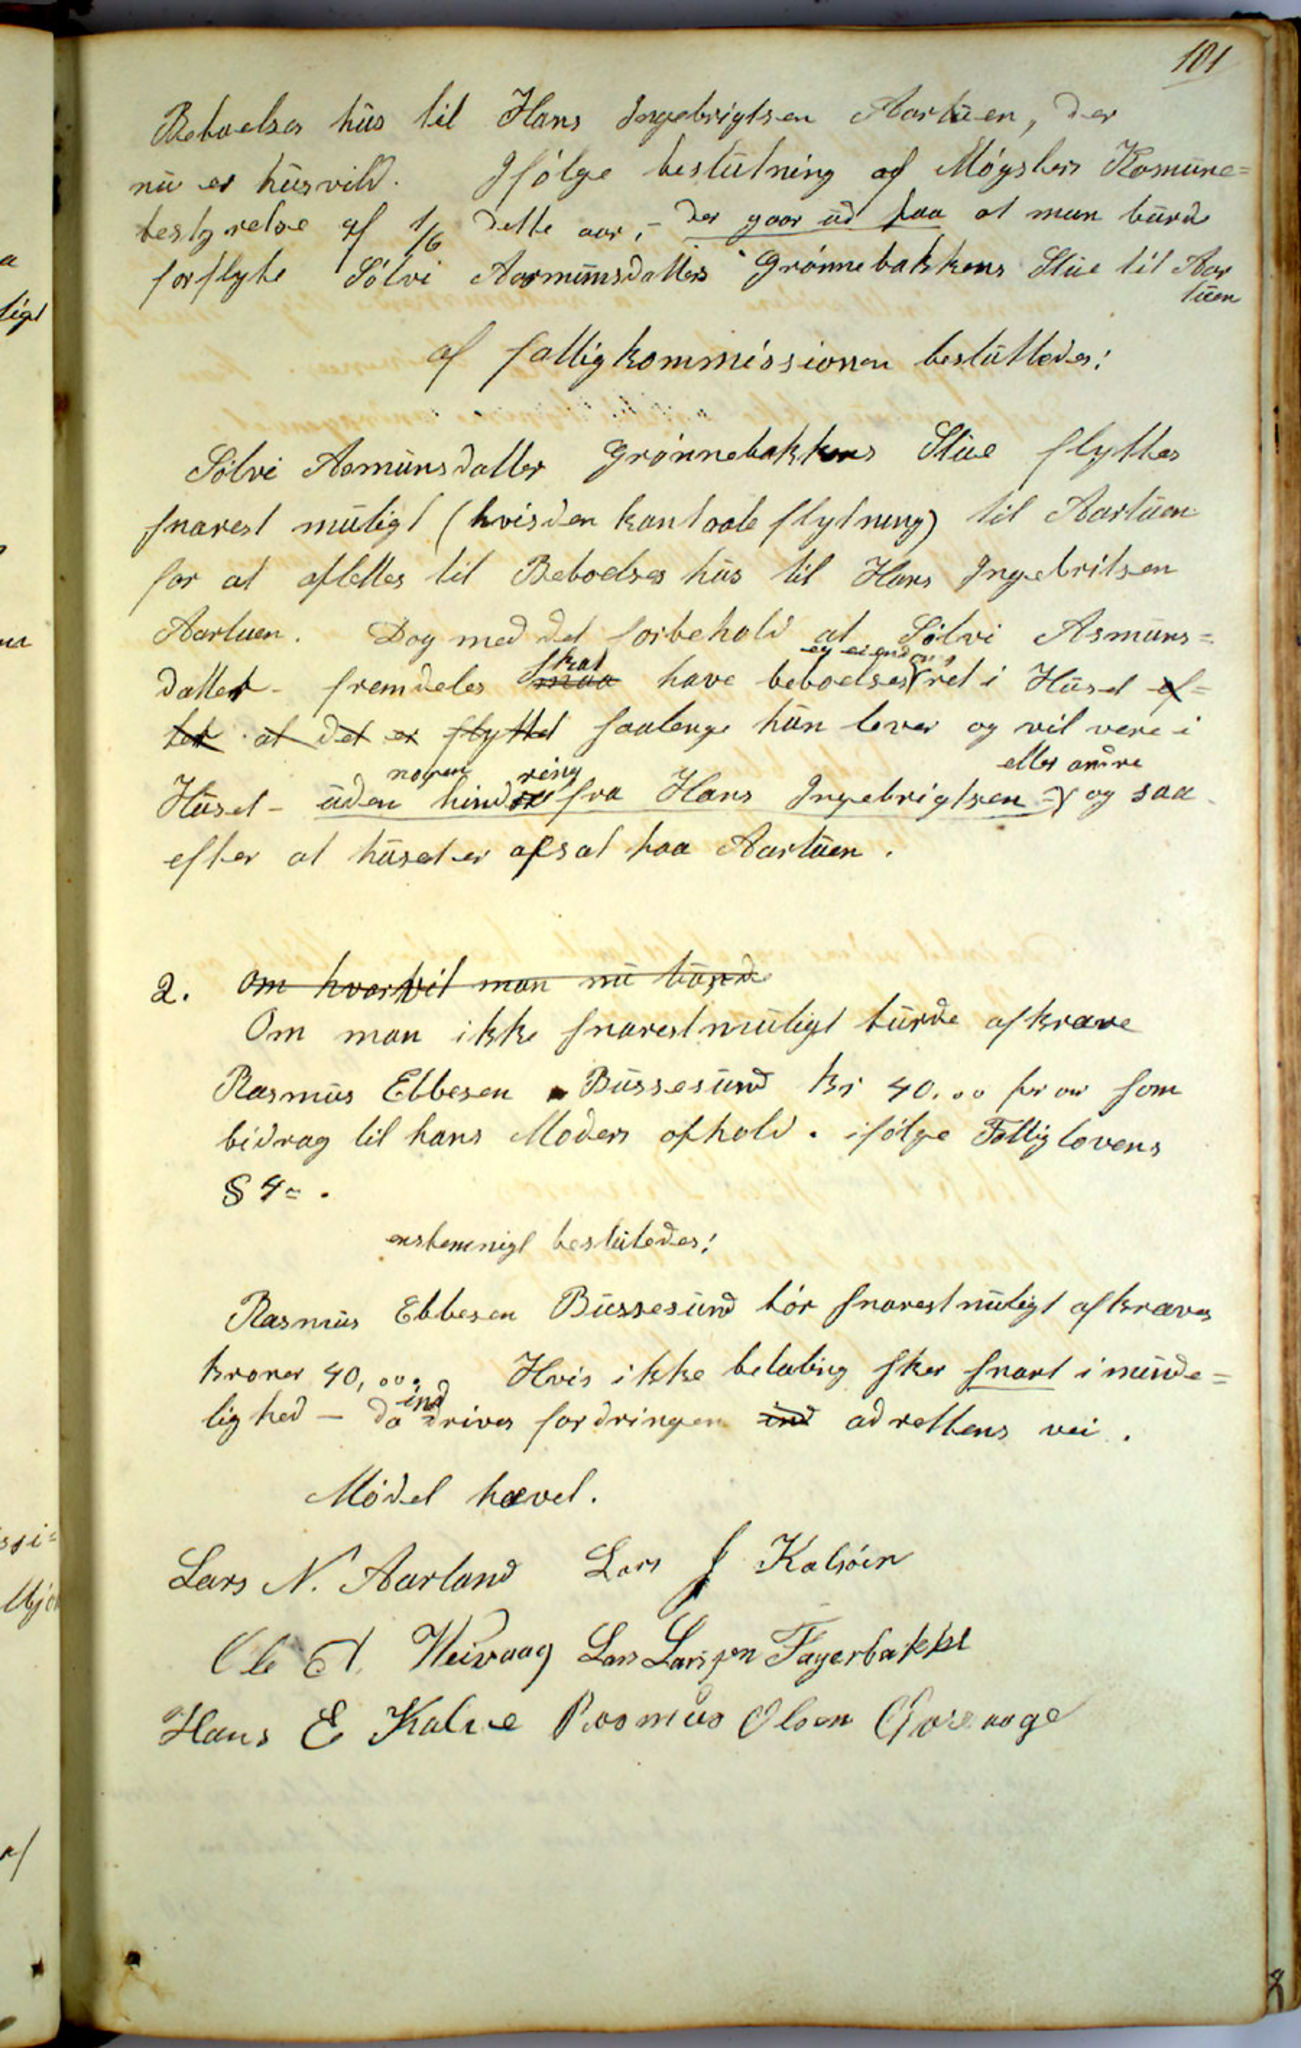 101
Beboelses hus til Hans Ingebrigtsen Aartuen, der
nu er husvild. Ifølge beslutning af Møgsters Komune=
bestyrelse af 1/6 dette aar, - der gaar ud paa at man burde
forflyte Sølvi Aasmunsdatters Grønnebakkens Stue til Aar
tuen
af fattigkommissionen besluttedes:
Sølvi Asmunsdatter Grønnebakkens Stue flyttes
snarest muligt (hvis den kan taale flytning) til Aartuen
for at aflettes til Beboelses hus til Hans Ingebritsen
Aartuen. Dog med det forbehold at Sølvi Asmuns=
og eiendoms
skal
datter - fremdeles maa have beboelses ret i Huset ef=
ter at det er flyttet saalenge hun lever og vil vere i
nogen ring eller andre
Huset - uden hinder fra Hans Ingebrigtsen - og saa
efter at huset er afsat paa Aartuen.
2. Om hvorvit man nu burde
Om man ikke snarest muligt burde afkræve
Rasmus Ebbesen Bussesund kr 40.00 pr aar som
bidrag til hans Moders ophold. ifølge Fattiglovens
§ 4 = .
enstemmigt besluttedes:
Rasmus Ebbesen Bussesund bør snarest muligt afkræves
kroner 40,00. Hvis ikke betaling sker snart i minde=
ind
lighed - da drives fordringen ind ad rettens vei.
Mødet hævet.
Lars N. Aarland Lars J Kalsøin
Ole A. Heivaag Lars Larssen Fagerbakke
Hans E Kalve Rasmus Olsen